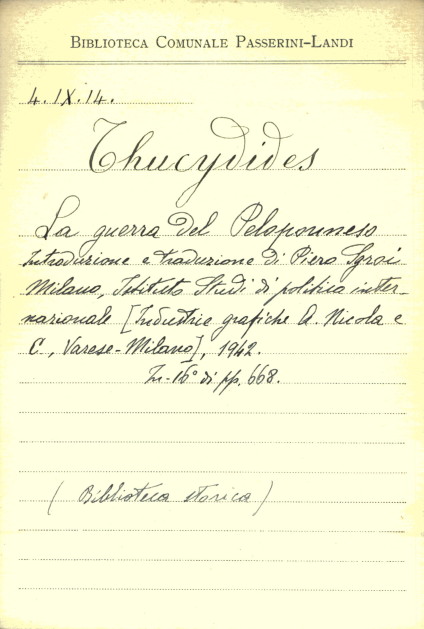 BIBLIOTECA COMUNALE PASSERINI-LANDI
4.IX.14.
Thucydides
La guerra del Peloponneso
Introduzione e traduzione di Piero Sgroi
Milano, Istituto Studi di politica inter-
nazionale [Industrie grafiche A. Nicola e
C., Varese-Milano], 1942.
In-16° di pp. 668.
(Biblioteca storica)